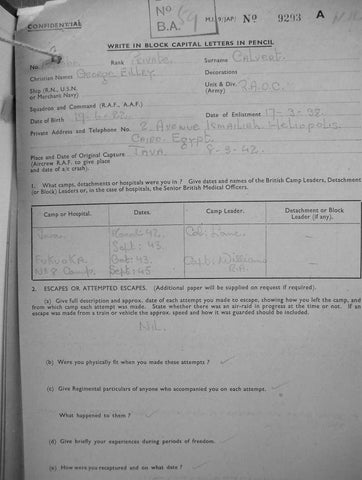 CONFIDENTIAL
No.
B.A.
59
M.I. 9/JAP/ No 9293 A
WRITE IN BLOCK CAPITAL LETTERS IN PENCIL
No. Rank Private Surname Calvert
Christian Names George Decorations
Ship (R.N., U.S.N. or Merchant Navy) Unit & Div. (Army) R.A.O.C.
Squadron and Command (R.A.F., A.A.F.)
Date of Birth Date of Enlistment 17-3-38
Private Address and Telephone No. 2, Avenue Ismailieh Heliopolis
Cairo. Egypt.
Place and Date of Original Capture JAVA 8-3-42.
(Aircrew R.A.F. to give place
and date of a/c crash).
1. What camps, detachments or hospitals were you in? Give dates and names of the British Camp Leaders, Detachment
(or Block) Leaders or, in the case of hospitals, the Senior British Medical Officers.
Camp or Hospital. Dates. Camp Leader. Detachment or Block Leader (if any).
Java. 42. Col. Lane.
Sept: 43.
Fukuoka Oct: 43. Capt. Williams
No 8 Camp. Sept: 45 R.A.
2. ESCAPES OR ATTEMPTED ESCAPES. (Additional paper will be supplied on request if required).
(a) Give full description and approx. date of each attempt you made to escape, showing how you left the camp, and
from which camp each attempt was made. State whether there was an air-raid in progress at the time or not. If an
escape was made from a train or vehicle the approx. speed and how it was guarded should be included.
NIL.
(b) Were you physically fit when you made these attempts?
(c) Give Regimental particulars of anyone who accompanied you on each attempt.
What happened to them?
(d) Give briefly your experiences during periods of freedom.
(e) How were you recaptured and on what date?